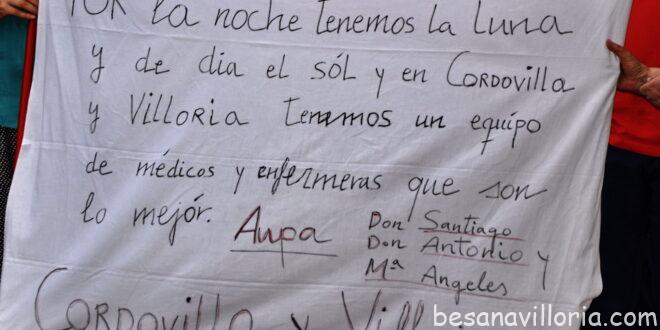 POR la noche tenemos la luna
y de dia el sól y en CORDOVILLA
y VILLORIA tenemos un equipo
de médicos y enfermeras que son
lo mejór. Aupa
Don Santiago
Don Antonio y
Mª Angeles
CORDOVILLA y
besanavilloria.com